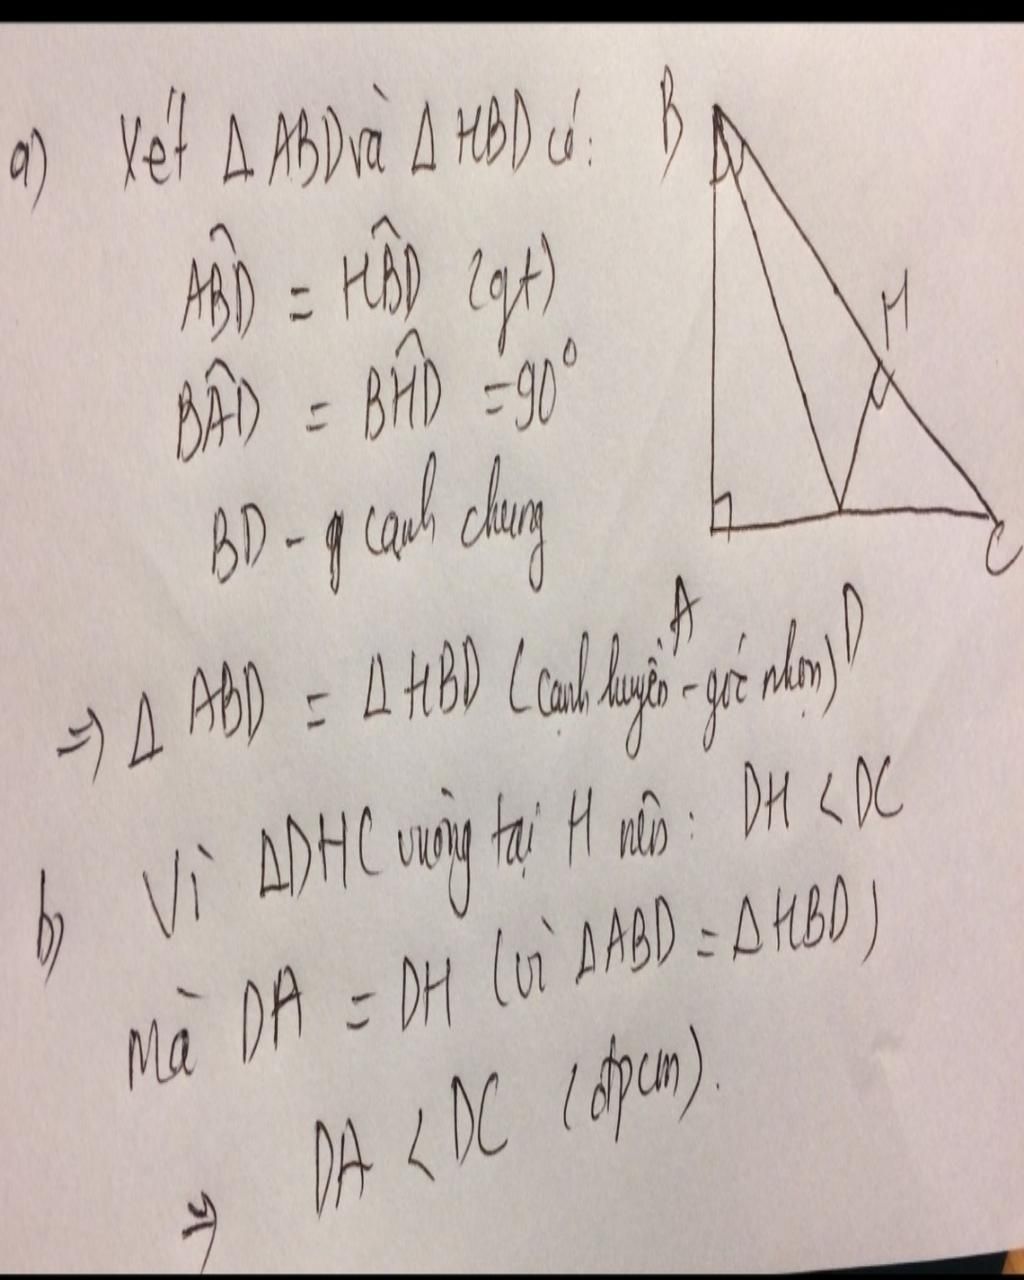 a) Xét Δ ABD và Δ HBD có:
B
ABD̂ = HBD̂ (gt)
H
BÂD = BĤD = 90°
BD - cạnh chung
C
A
D
=> Δ ABD = Δ HBD (cạnh huyền - góc nhọn)
b) Vì ΔDHC vuông tại H nên: DH < DC
Mà DA = DH (vì ΔABD = ΔHBD)
=> DA < DC (đpcm).